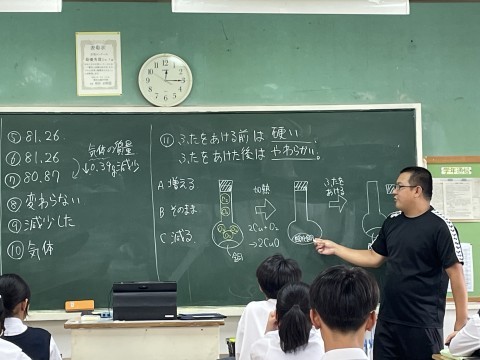 ⑤ 81.26
⑥ 81.26
⑦ 80.87
気体の質量
0.39g減少
⑧ 変わらない
⑨ 減少した
⑩ 気体
⑪ ふたをあける前は 硬い!
ふたをあけた後は やわらかい。
A 増える
B そのまま
C 減る
加熱
ふたを
あける
2Cu+O₂
→2CuO
銅